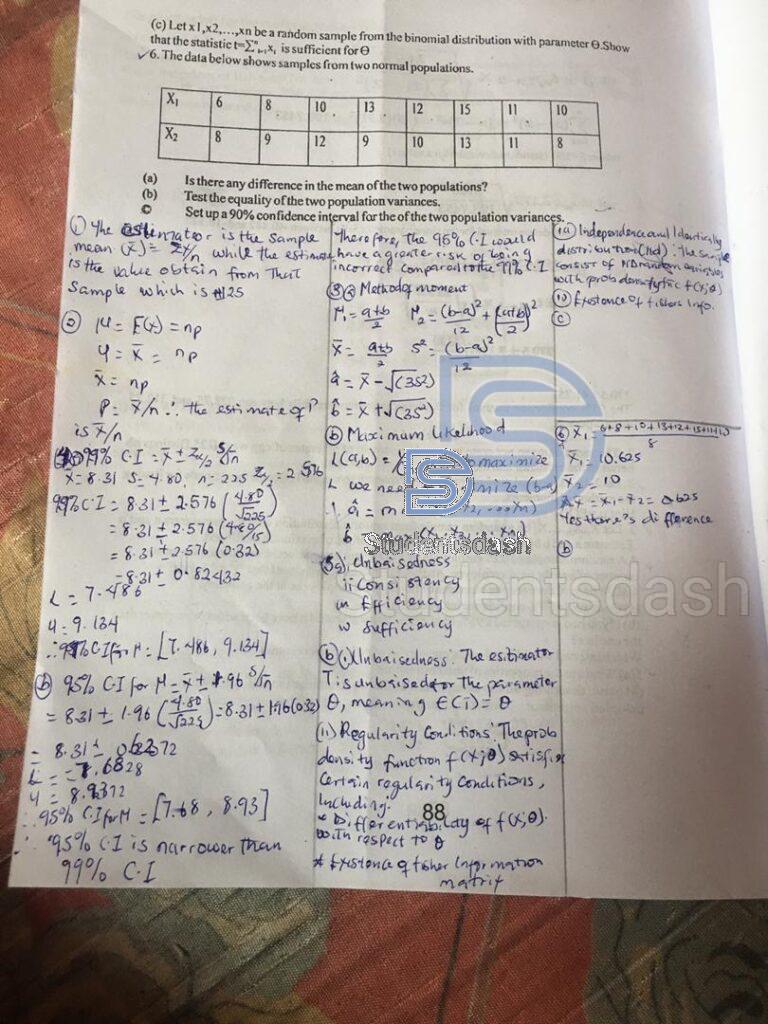 (c) Let x1,x2,...,xn be a random sample from the binomial distribution with parameter Θ.Show
that the statistic t=∑ⁿᵢ₌₁xᵢ is sufficient for Θ
✓6. The data below shows samples from two normal populations.
X₁ 6 8 10 13 12 15 11 10
X₂ 8 9 12 9 10 13 11 8
(a) Is there any difference in the mean of the two populations?
(b) Test the equality of the two population variances.
© Set up a 90% confidence interval for the of the two population variances.
① The estimator is the sample
mean (x̄) = Σx/n while the estimate
is the value obtain from that
sample which is 25
② μ = E(x) = np
μ = x̄ = np
x̄ = np
P = x̄/n ∴ the estimate of P
is x̄/n
99% C.I = x̄ ± Zα/₂ S/√n
x̄ = 8.31 S = 4.80, n = 225 Z/₂ = 2.576
99% C.I = 8.31 ± 2.576 (4.80/√225)
= 8.31 ± 2.576 (4.80/15)
= 8.31 ± 2.576 (0.32)
= 8.31 ± 0.82432
L = 7.486
U = 9.134
∴ 99% C.I for μ = [7.486, 9.134]
ⓑ 95% C.I for μ = x̄ ± 1.96 S/√n
= 8.31 ± 1.96 (4.80/√225) = 8.31 ± 1.96(0.32)
= 8.31 ± 0.6272
L = 7.6828
U = 8.9372
∴ 95% C.I for μ = [7.68, 8.93]
∴ 95% C.I is narrower than
99% C.I
Therefore, the 95% C.I would
have a greater risk of being
incorrect compared to the 99% C.I
③ⓐ Method of moment
μ₁ = a+b/2 μ₂ = (b-a)²/12 + (a+b/2)²
x̄ = a+b/2 S² = (b-a)²/12
â = x̄ - √(3S²)
b̂ = x̄ + √(3S²)
ⓑ Maximum Likelihood
L(a,b) = to maximize
L we need minimize (b-a)
∴ â = m
b̂
Studentsdash
⑤a) i, Unbaisedness
ii Consistency
iii Efficiency
iv Sufficiency
ⓑ (i) Unbaisedness: The esitmator
T is unbaised for the parameter
θ, meaning E(i) = θ
(ii) Regularity Conditions: The prob
density function f(x;θ) satisfies
Certain regularity Conditions,
Including:
* Differentiability of f(x;θ).
with respect to θ
* Existence of fisher Information
matrix
88
Independence and Identically
distribution (iid): The sample
consist of N random variables
with prob density fnc f(x;θ)
Existance of fishers Info.
ⓒ
⑥ x̄₁ = 6+8+10+13+12+15+11+10/8
x̄₁ = 10.625
x̄₂ = 10
x̄₁ - x̄₂ = 0.625
Yes there's difference
ⓑ
Studentsdash